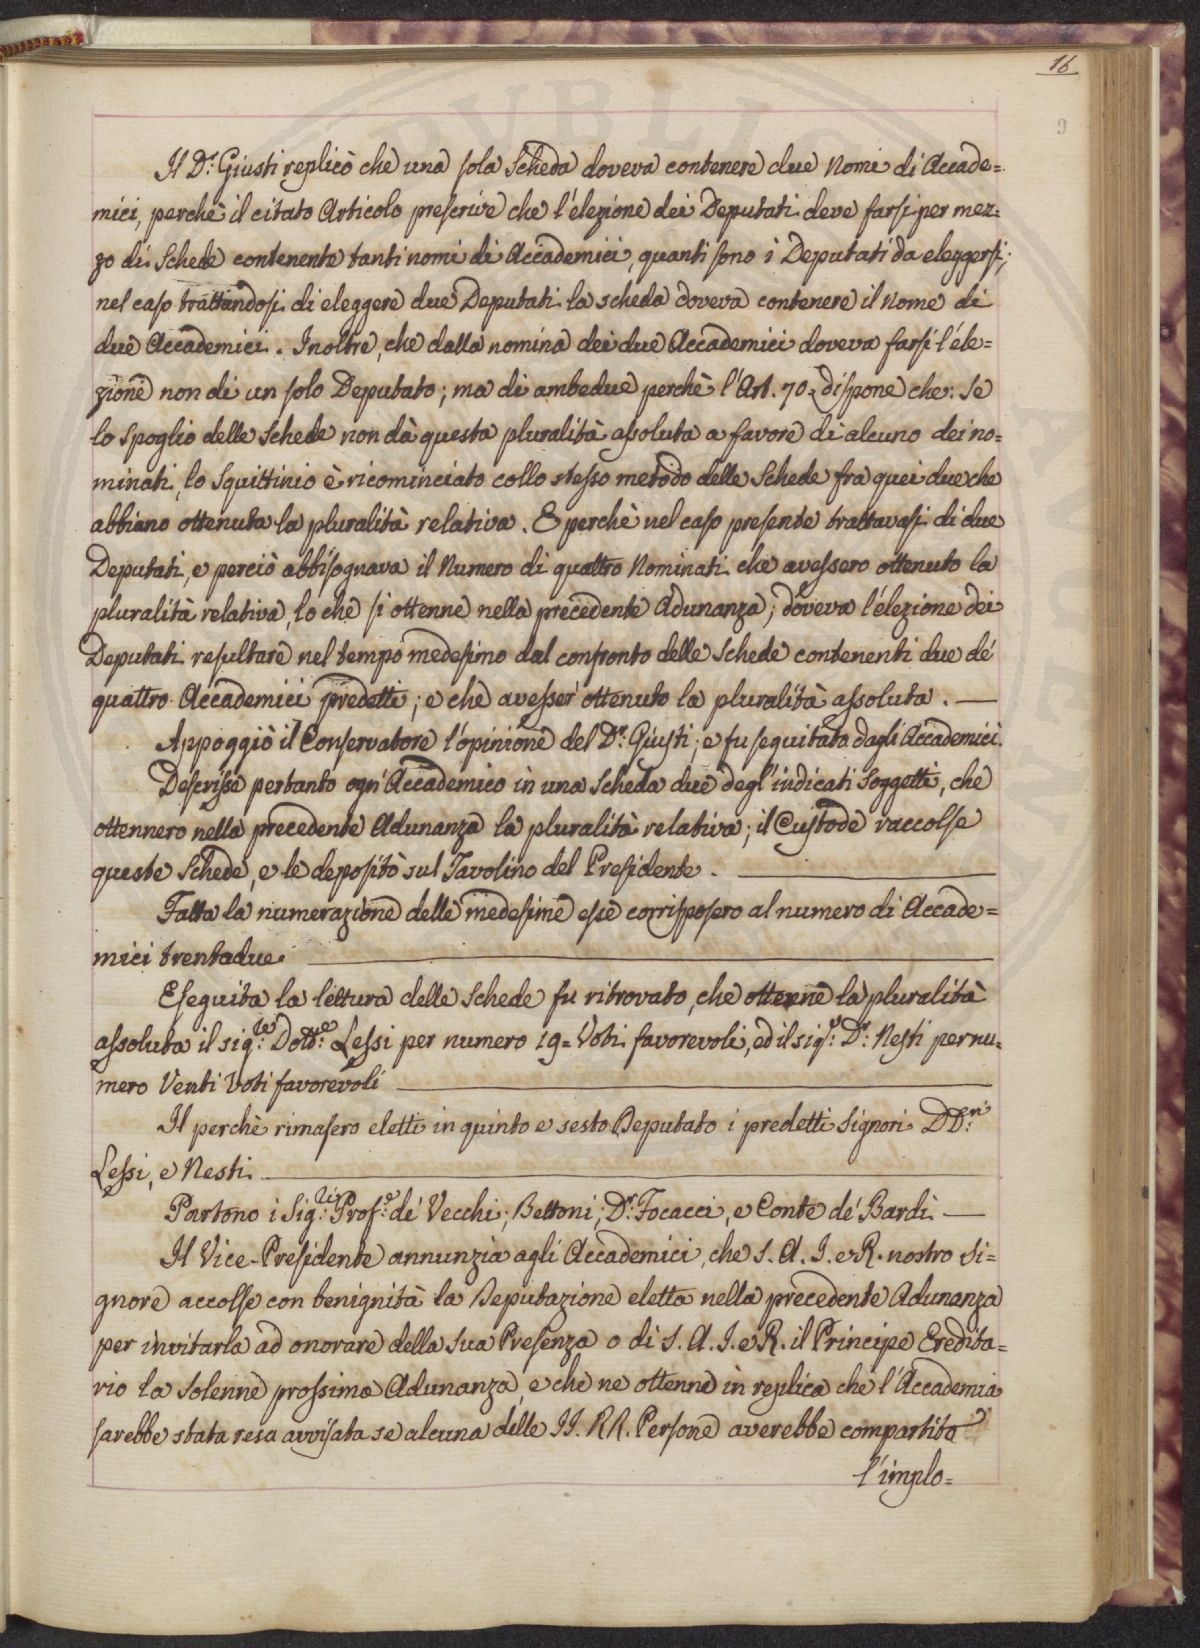 16
9
Il D.r Giusti replicò che una sola Scheda doveva contenere due Nomi di Accade=
mici, perchè il citato Articolo prescrive che l'elezione dei Deputati deve farsi per mez=
zo di Schede contenente tanti nomi di Accademici, quanti sono i Deputati da eleggersi;
nel caso trattandosi di eleggere due Deputati la scheda doveva contenere il Nome di
due Accademici. Inoltre, che dalla nomina dei due Accademici doveva farsi l'ele=
zione non di un solo Deputato; ma di ambedue perchè l'Art. 70. dispone che: Se
lo spoglio delle Schede non dà questa pluralità assoluta a favore di alcuno dei no=
minati, lo Squittinio è ricominciato collo stesso metodo delle Schede fra quei due che
abbiano ottenuta la pluralità relativa. E perchè nel caso presente trattavasi di due
Deputati, e perciò abbisognava il Numero di quattro Nominati che avessero ottenuto la
pluralità relativa, lo che si ottenne nella precedente Adunanza; doveva l'elezione dei
Deputati resultare nel tempo medesimo dal confronto delle Schede contenenti due de'
quattro Accademici predetti; e che avesser' ottenuto la pluralità assoluta. —
Appoggiò il Conservatore l'opinione del D.r Giusti; e fu seguitata dagli Accademici.
Descrisse pertanto ogn'Accademico in una Scheda due degl'indicati Soggetti, che
ottennero nella precedente Adunanza la pluralità relativa; il Custode raccolse
queste Schede, e le depositò sul Tavolino del Presidente. —
Fatta la numerazione delle medesime esse corrisposero al numero di Accade=
mici trentadue. —
Eseguita la lettura delle Schede fu ritrovato, che ottenne la pluralità
assoluta il sig.re Dott.e Lessi per numero 19= Voti favorevoli, ed il sig.e D.r Nesti per nu=
mero Venti Voti favorevoli —
Il perchè rimasero eletti in quinto e sesto Deputato i predetti Signori DD.ri
Lessi, e Nesti. —
Partono i Sig.ri Prof.e de' Vecchi; Bettoni; D.r Focacci, e Conte de' Bardi —
Il Vice-Presidente annunzia agli Accademici, che S. A. I. e R. nostro Si=
gnore accolse con benignità la Deputazione eletta nella precedente Adunanza
per invitarla ad onorare della sua Presenza o di S. A. I. e R. il Principe Eredita=
rio la Solenne prossima Adunanza, e che ne ottenne in replica che l'Accademia
sarebbe stata resa avvisata se alcuna delle II. RR. Persone averebbe compartito
l'implo=